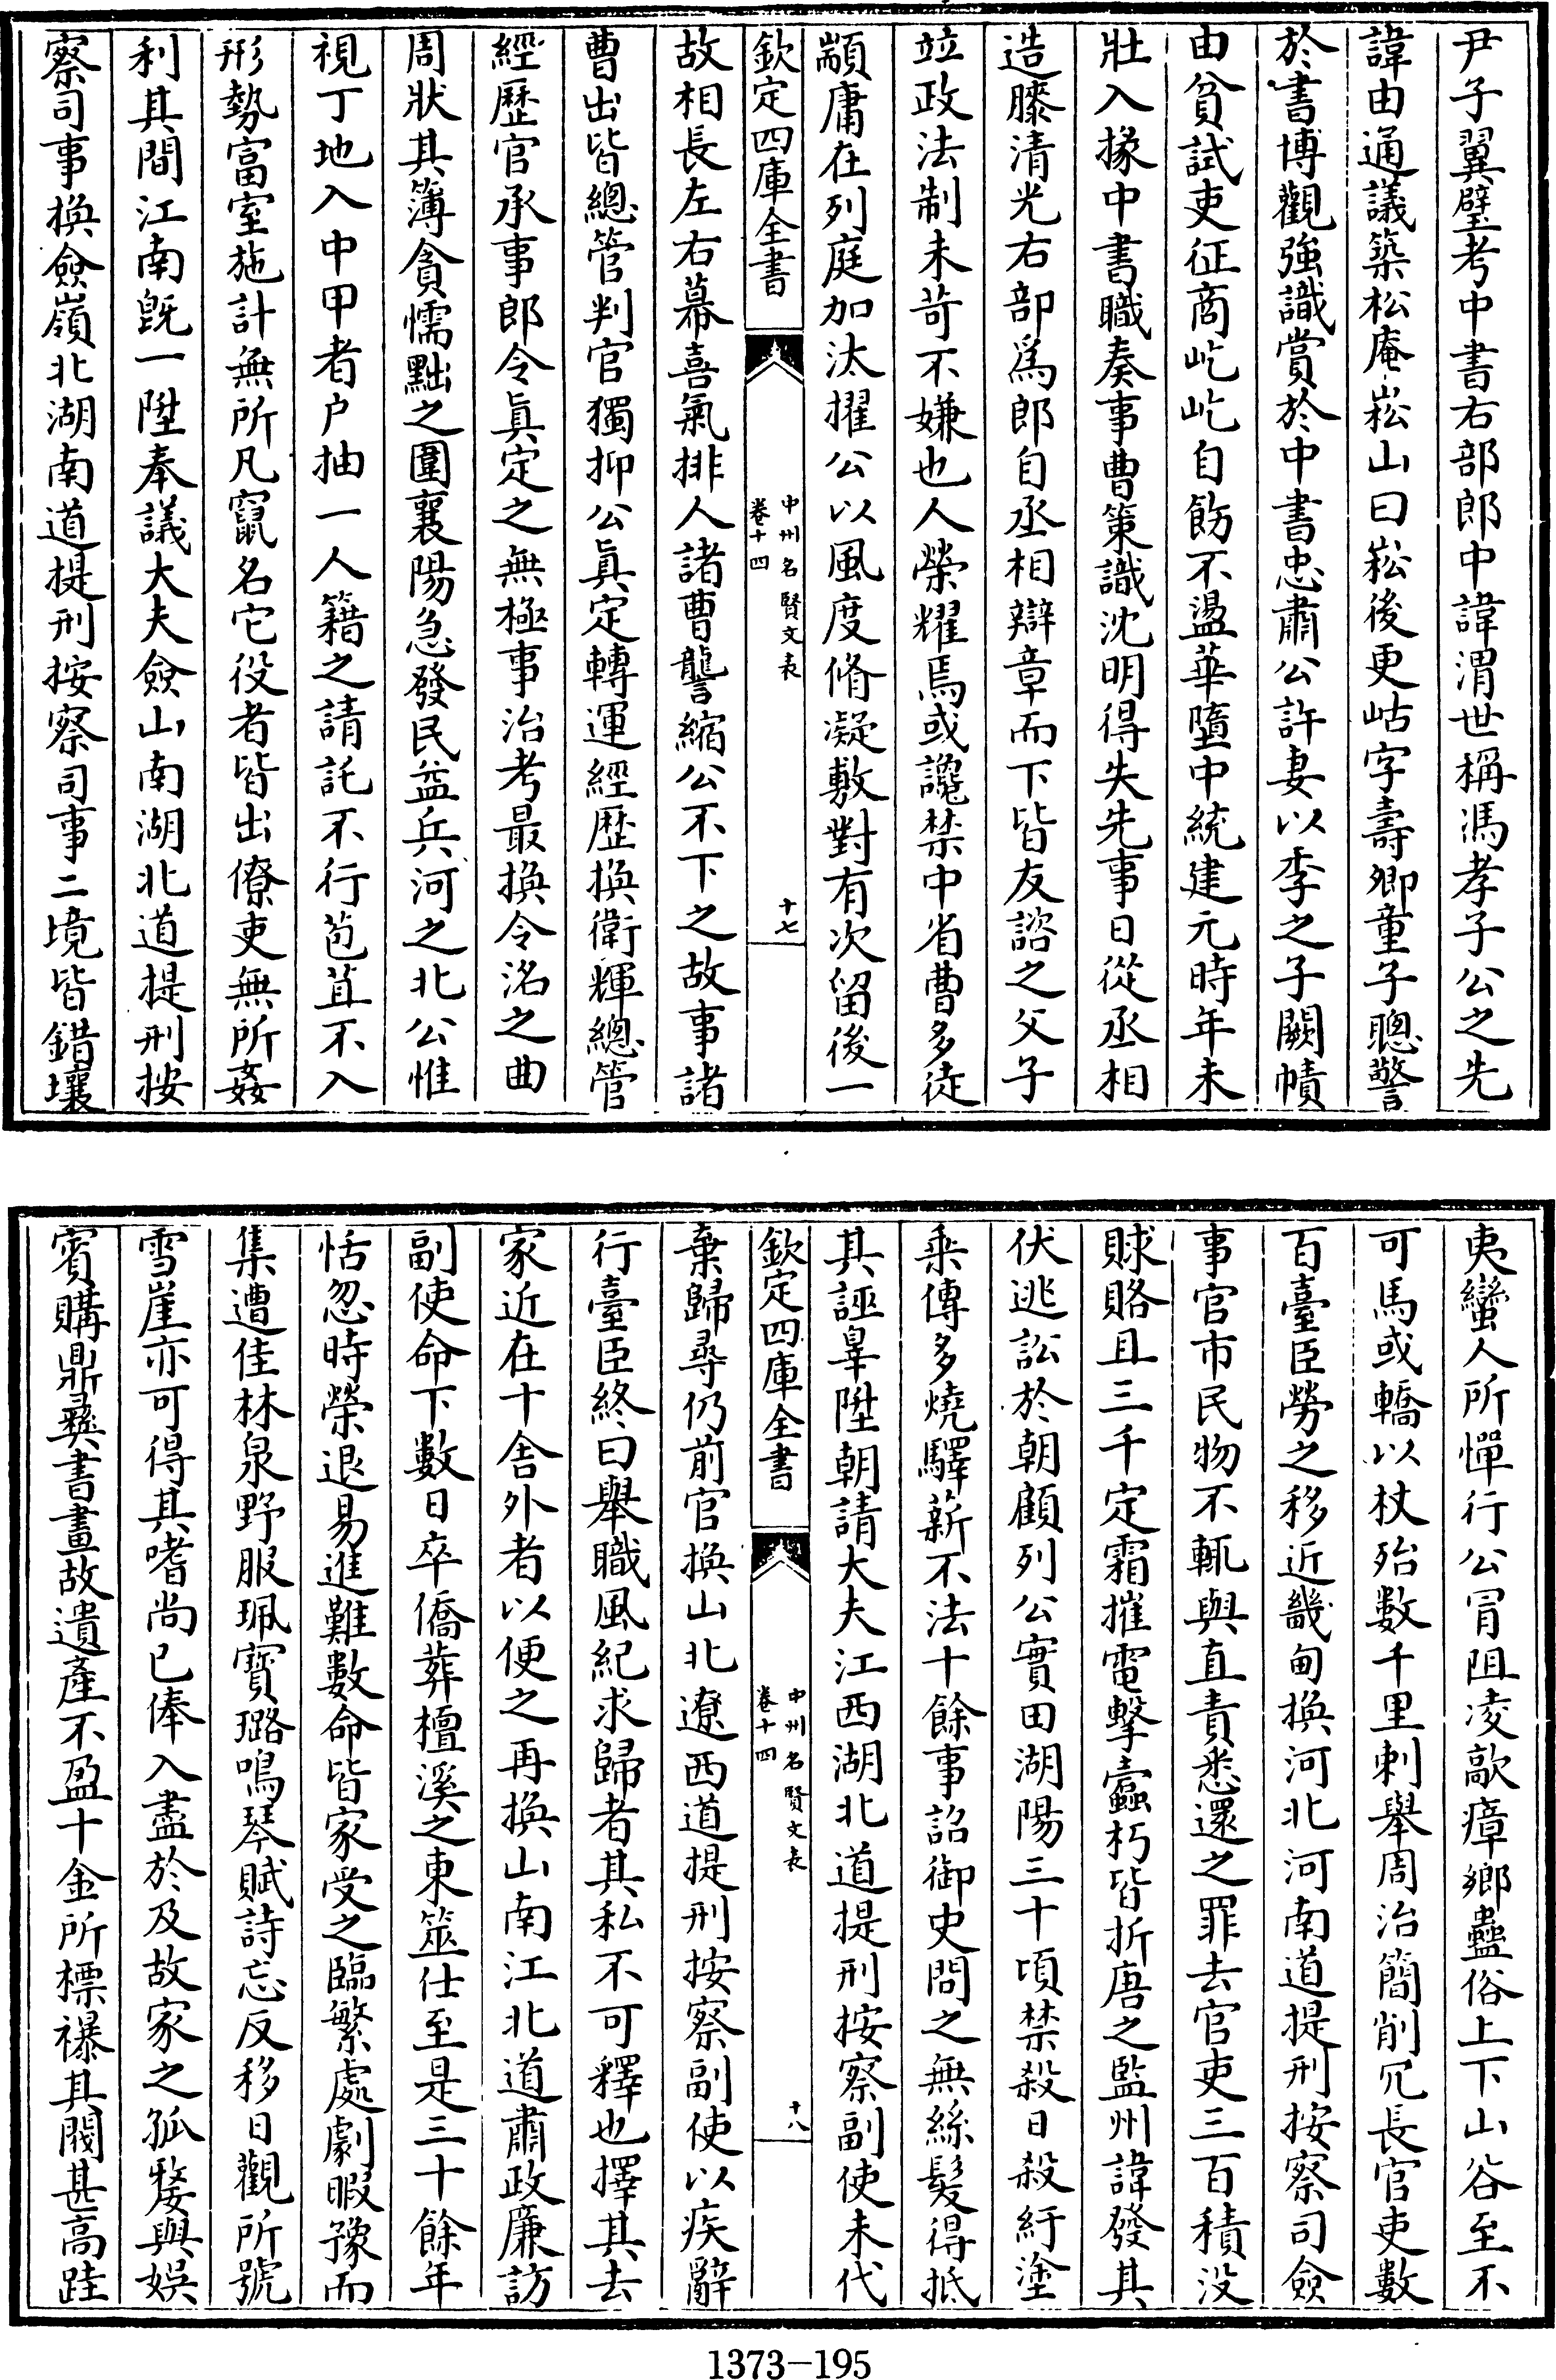 尹子翼璧考中書右部郎中諱渭世稱馮孝子公之先
諱由通議築松庵崧山曰崧後更岵字壽卿童子聰警
於書博觀強識賞於中書忠肅公許妻以季之子闕幘
由貧試吏征商屹屹自飭不盪華墮中統建元時年未
壯入掾中書職奏事曹策識沈明得失先事日從丞相
造膝清光右部爲郎自丞相辯章而下皆友諮之父子
竝政法制未苛不嫌也人榮耀焉或讒禁中省曹多徒
顓庸在列庭加汰擢公以風度脩凝敷對有次留後一
欽定四庫全書
中州名賢文表
卷十四
十七
故相長左右幕喜氣排人諸曹讋縮公不下之故事諸
曹出皆總管判官獨抑公真定轉運經歷換衛輝總管
經歷官承事郎令真定之無極事治考最換令洺之曲
周狀其簿貪懦黜之圍襄陽急發民益兵河之北公惟
視丁地入中甲者户抽一人籍之請託不行苞苴不入
形勢富室施計無所凡竄名它役者皆出僚吏無所姦
利其間江南旣一陞奉議大夫僉山南湖北道提刑按
察司事換僉嶺北湖南道提刑按察司事二境皆錯壤
夷蠻人所憚行公冐阻凌歊瘴鄉蠱俗上下山谷至不
可馬或轎以杖殆數千里刺舉周治簡削冗長官吏數
百臺臣勞之移近畿甸換河北河南道提刑按察司僉
事官市民物不輒與直責悉還之罪去官吏三百積没
賕賂且三千定霜摧電擊蠧朽皆折唐之監州諱發其
伏逃訟於朝顧列公實田湖陽三十頃禁殺日殺紆塗
乘傳多燒驛薪不法十餘事詔御史問之無絲髮得抵
其誣辠陞朝請大夫江西湖北道提刑按察副使未代
欽定四庫全書
中州名賢文表
卷十四
十八
棄歸尋仍前官換山北遼西道提刑按察副使以疾辭
行臺臣終曰舉職風紀求歸者其私不可釋也擇其去
家近在十舍外者以便之再換山南江北道肅政廉訪
副使命下數日卒僑葬檀溪之東筮仕至是三十餘年
恬忽時榮退易進難數命皆家受之臨繁處劇暇豫而
集遭佳林泉野服珮寶璐鳴琴賦詩忘反移日觀所號
雪崖亦可得其嗜尚已俸入盡於及故家之孤嫠與娯
賓購鼎彞書畫故遺產不盈十金所標襮其閥甚高跬
1373—195